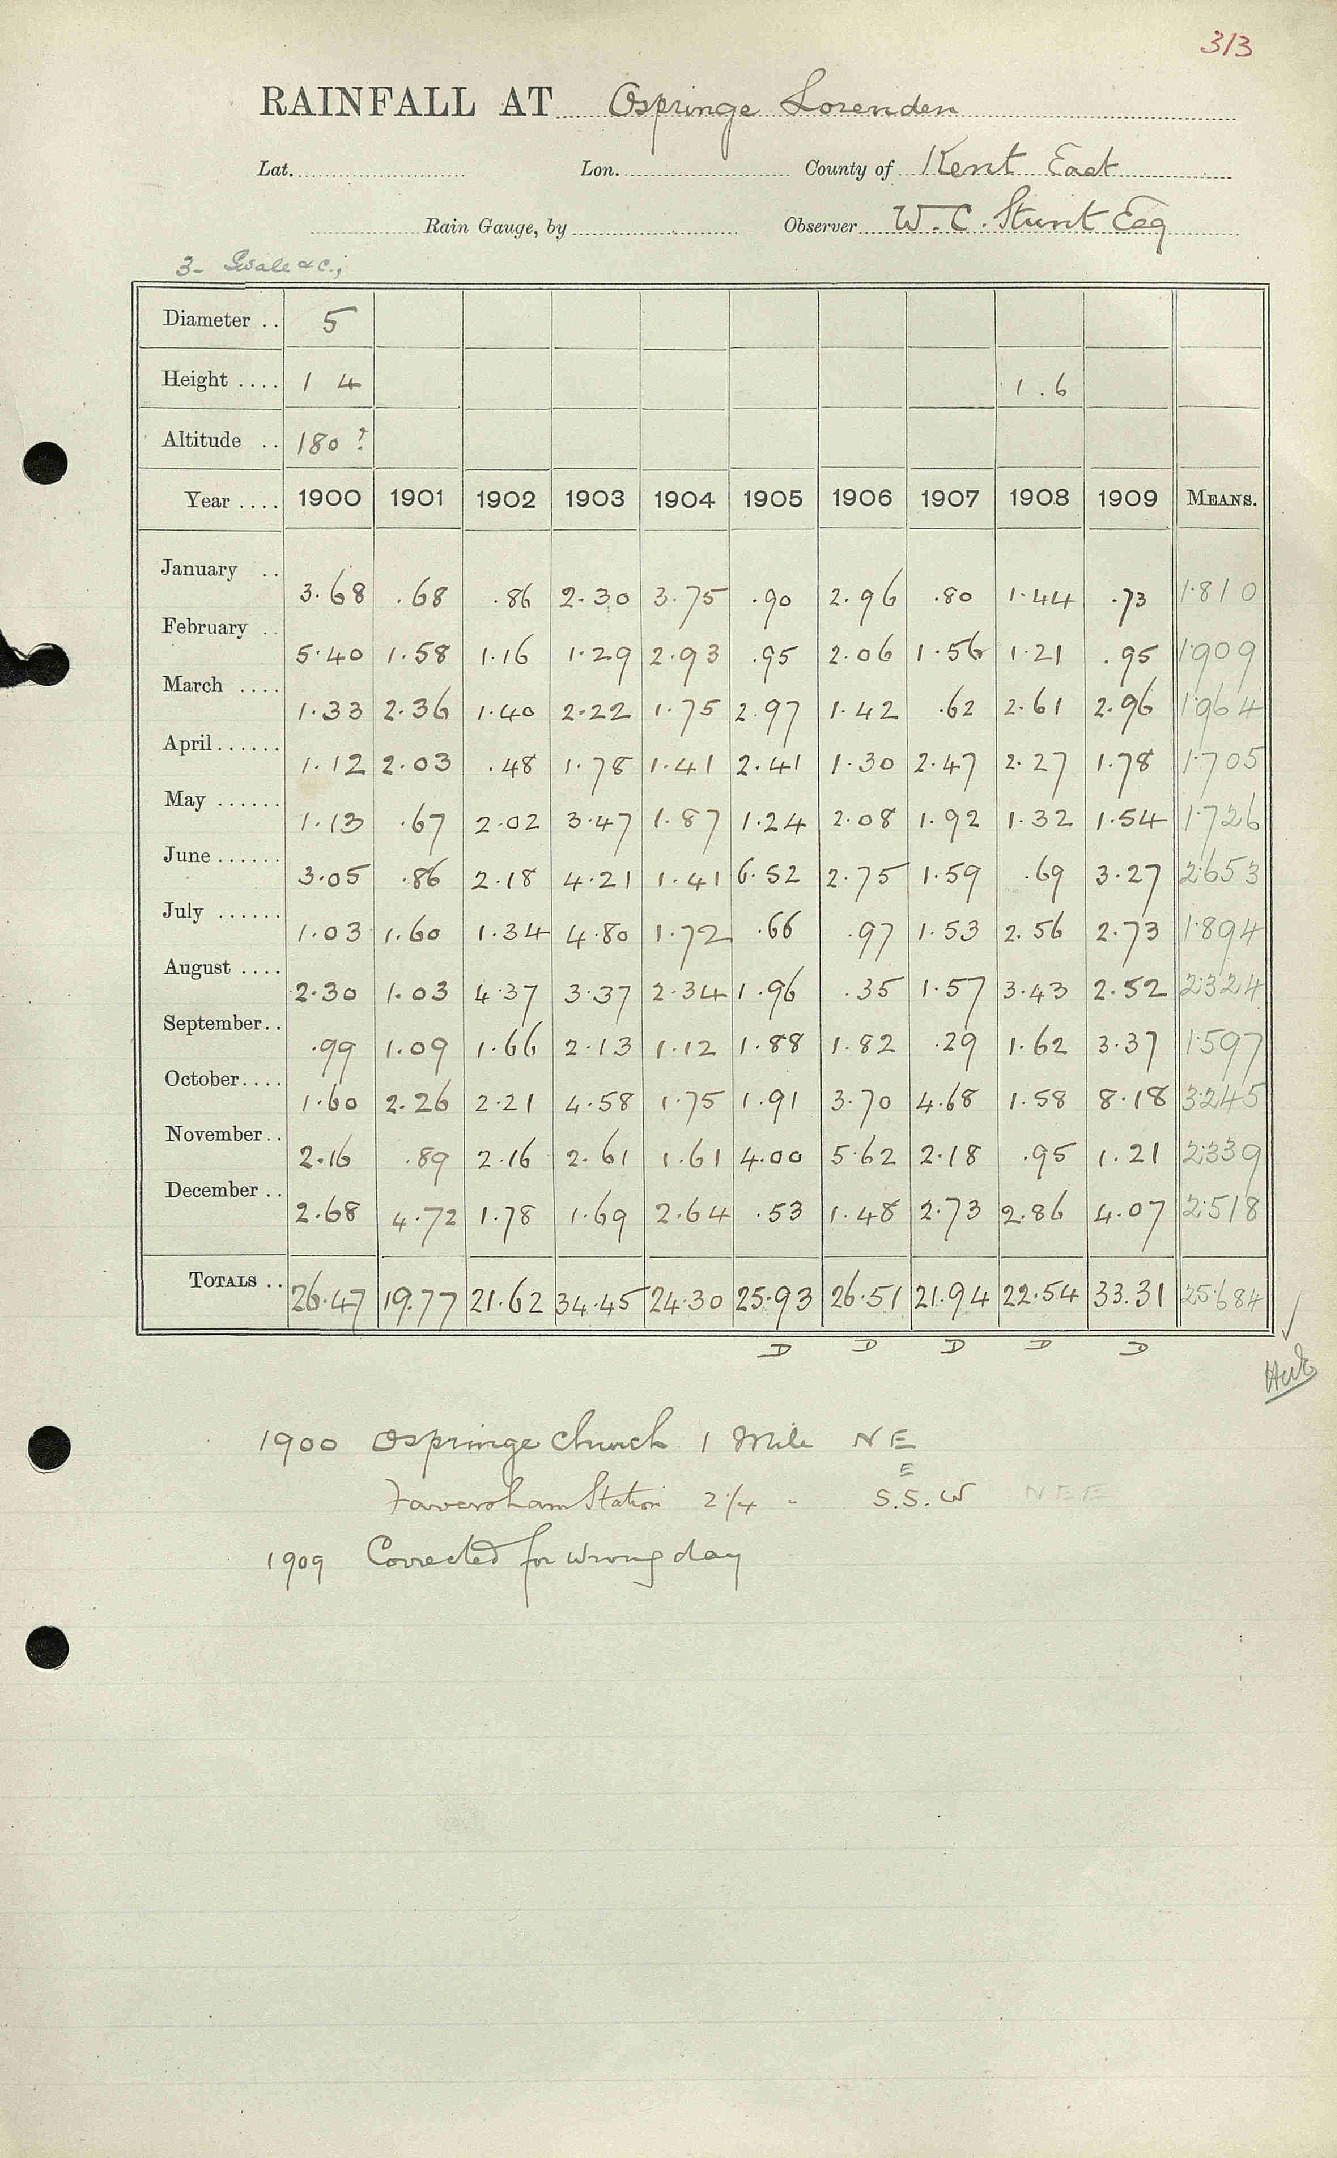 313
RAINFALL AT Ospringe Lorenden
Lat. Lon. County of Kent East
Rain Gauge, by Observer W. C. Stunt Esq
3- Swale &c.,
Diameter .. 5
Height .... 1 4 1.6
Altitude .. 180 ?
Year .... 1900 1901 1902 1903 1904 1905 1906 1907 1908 1909 MEANS.
January .. 3.68 .68 .86 2.30 3.75 .90 2.96 .80 1.44 .73 1.810
February .. 5.40 1.58 1.16 1.29 2.93 .95 2.06 1.56 1.21 .95 1.909
March .... 1.33 2.36 1.40 2.22 1.75 2.97 1.42 .62 2.61 2.96 1.964
April...... 1.12 2.03 .48 1.78 1.41 2.41 1.30 2.47 2.27 1.78 1.705
May ...... 1.13 .67 2.02 3.47 1.87 1.24 2.08 1.92 1.32 1.54 1.726
June...... 3.05 .86 2.18 4.21 1.41 6.52 2.75 1.59 .69 3.27 2.653
July ...... 1.03 1.60 1.34 4.80 1.72 .66 .97 1.53 2.56 2.73 1.894
August .... 2.30 1.03 4.37 3.37 2.34 1.96 .35 1.57 3.43 2.52 2.324
September.. .99 1.09 1.66 2.13 1.12 1.88 1.82 .29 1.62 3.37 1.597
October.... 1.60 2.26 2.21 4.58 1.75 1.91 3.70 4.68 1.58 8.18 3.245
November.. 2.16 .89 2.16 2.61 1.61 4.00 5.62 2.18 .95 1.21 2.339
December .. 2.68 4.72 1.78 1.69 2.64 .53 1.48 2.73 2.86 4.07 2.518
TOTALS .. 26.47 19.77 21.62 34.45 24.30 25.93 26.51 21.94 22.54 33.31 25.684
D D D D D
1900 Ospringe Church 1 Mile NE
E
Faversham Station 2 1/4 " S.S.W NEE
1909 Corrected for wrong day